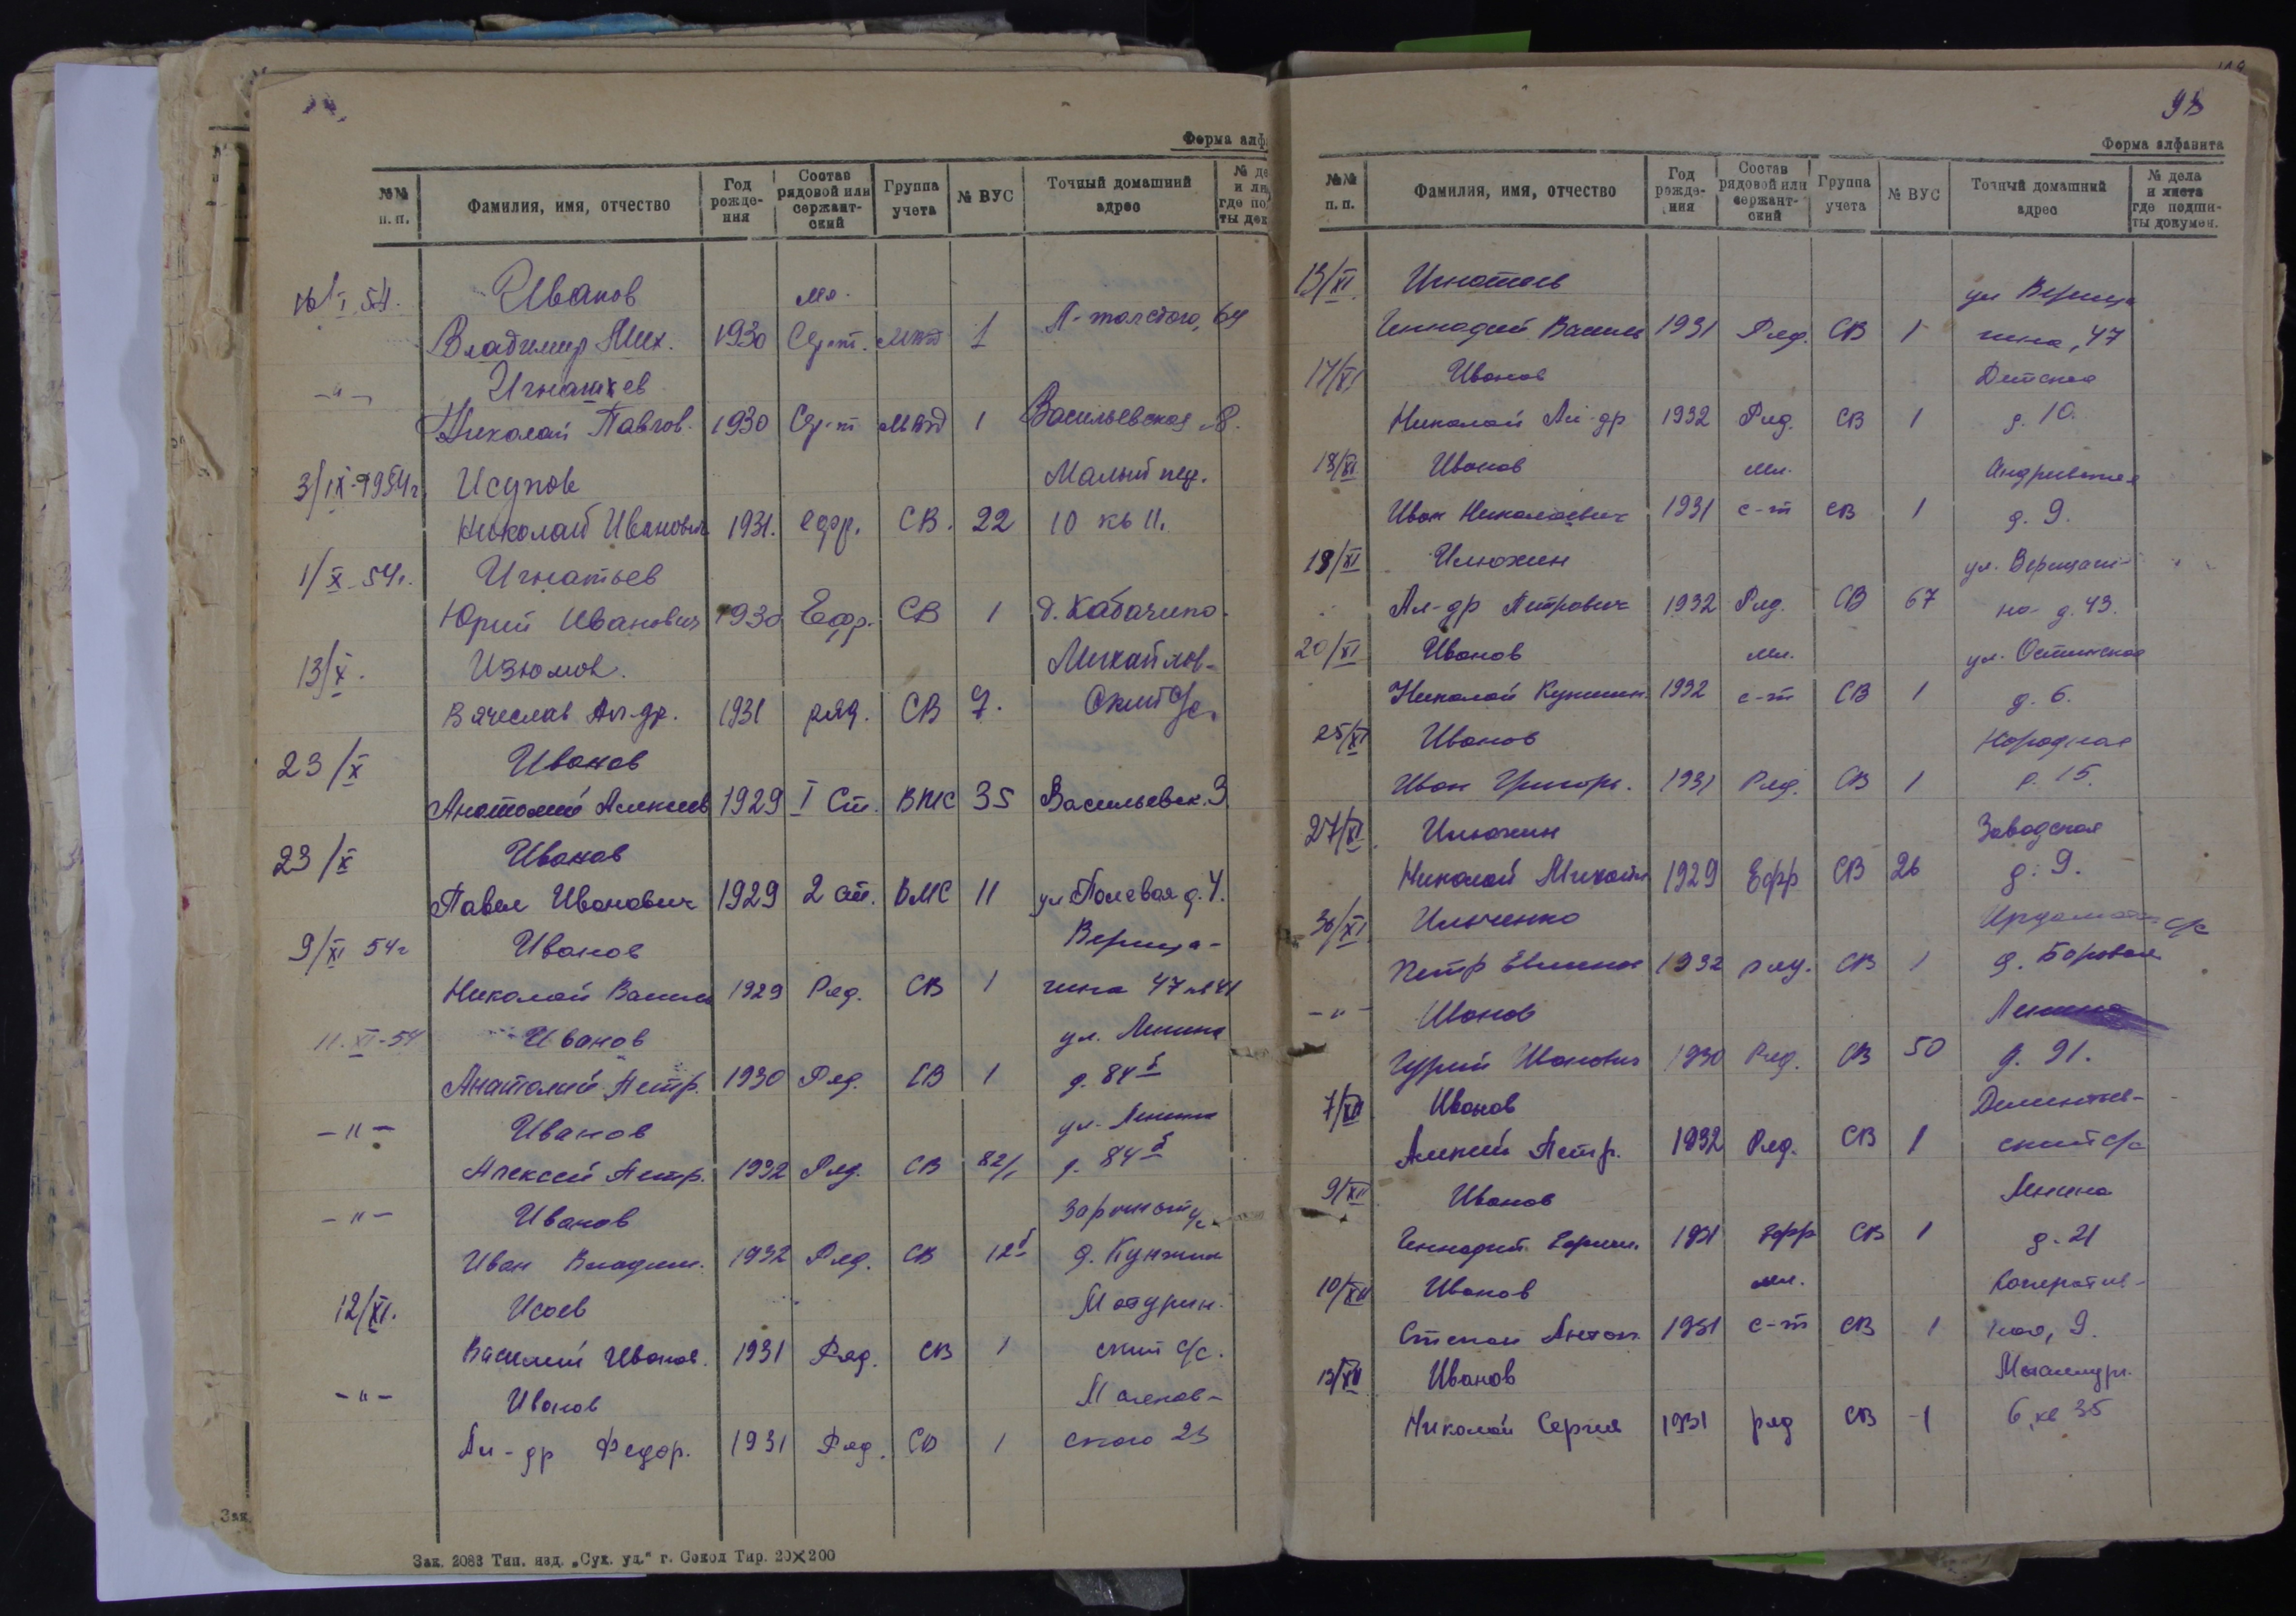 Форма алф
№№ п. п. Фамилия, имя, отчество Год рожде- ния Состав рядовой или сержант- ский Группа учета № ВУС Точный домашний адрес № де и ли где по ты док
I 54. Иванов мл.
Владимир Мих. 1930 Серж. 1 Л-толстого, 64
-"- Игнашев
Николай Павлов. 1930 1 Васильевская 8.
3/IX-1954г. Исупов Малый пер.
Николай Иванович 1931. ефр. СВ. 22 10 кв 11.
1/X-54г. Игнатьев
Юрий Иванович 1930 Ефр. СВ 1 д. Кабачино.
13/X. Изюмов. Михайлов-
Вячеслав Ал-др. 1931 ряд. СВ 7. ский с/с.
23/X Иванов
Анатолий Алексеев 1929 I Ст. ВМС 35 Васильевск. 9
23/X Иванов
Павел Иванович 1929 2 ст. ВМС 11 ул Полевая д. 4.
9/XI 54г Иванов Вереща-
Николай Василь 1929 Ряд. СВ 1 гина 47 кв 41
11.XI-54 Иванов ул. Ленина
Анатолий Петр. 1930 Ряд. СВ 1 д. 84б
-"- Иванов ул. Ленина
Алексей Петр. 1932 Ряд. СВ 82/1 д. 84б
-"- Иванов Заречный с/с
Иван Владим. 1932 Ряд. СВ 12б д. Кунжил
12/XI. Исаев Матурин-
Василий Иванов. 1931 Ряд. СВ 1 ский с/с.
-"- Иванов Маленов-
Ал-др Федор. 1931 Ряд. СВ 1 ского 23
Зак. 2083 Тип. изд. „Сух. уд." г. Сокол Тир. 20×200
93
Форма алфавита
№№ п. п. Фамилия, имя, отчество Год рожде- ния Состав рядовой или сержант- ский Группа учета № ВУС Точный домашний адрес № дела и листа где подши- ты докумен.
13/XI. Игнатьев ул Вереща
Геннадий Василь 1931 Ряд. СВ 1 гина, 47
17/XI Иванов Детская
Николай Ал-др 1932 Ряд. СВ 1 д. 10.
18/XI Иванов мл. Андреевская
Иван Николаевич 1931 с-т СВ 1 д. 9.
18/XI Илюхин ул. Верещаги-
Ал-др Петрович 1932 Ряд. СВ 67 на д. 43.
20/XI Иванов мл. ул.
Николай 1932 с-т СВ 1 д. 6.
25/XI Иванов Народная
Иван Григорь. 1931 Ряд. СВ 1 д. 15.
27/XI Илюхин Заводская
Николай Михайл 1929 Ефр СВ 26 д. 9.
30/XI Ильченко Ирдомат с/с
Петр 1932 ряд. СВ 1 д. Боровая
-"- Иванов Ленина
Гурий Иванович 1930 Ряд. СВ 50 д. 91.
7/XII Иванов Дементьев-
Алексей Петр. 1932 Ряд. СВ 1 ский с/с
9/XII Иванов Ленина
Геннадий 1931 Ефр СВ 1 д. 21
10/XII Иванов мл. Коператив-
Степан Антон. 1931 с-т СВ 1 ная, 9.
13/XII Иванов Металлург.
Николай Сергеев 1931 ряд СВ 1 6, кв 35